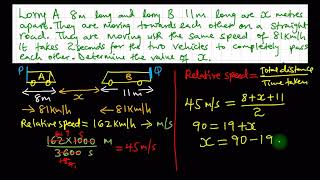 Lorry A 8m long and lorry B 11m long are x metres
apart. They are moving towards each other on a straight
road. They are moving with the same speed of 81km/h
It takes 2 seconds for the two vehicles to completely pass
each other. Determine the value of x.
P
Q
A
B
8m
x
11m
→81km/h
←81km/h
Relative speed = 162 km/h → m/s
162 × 1000
3600 s
= 45 m/s
Relative speed = Total distance
Time taken
45 m/s = 8+x+11
2
90 = 19+x
x = 90-19